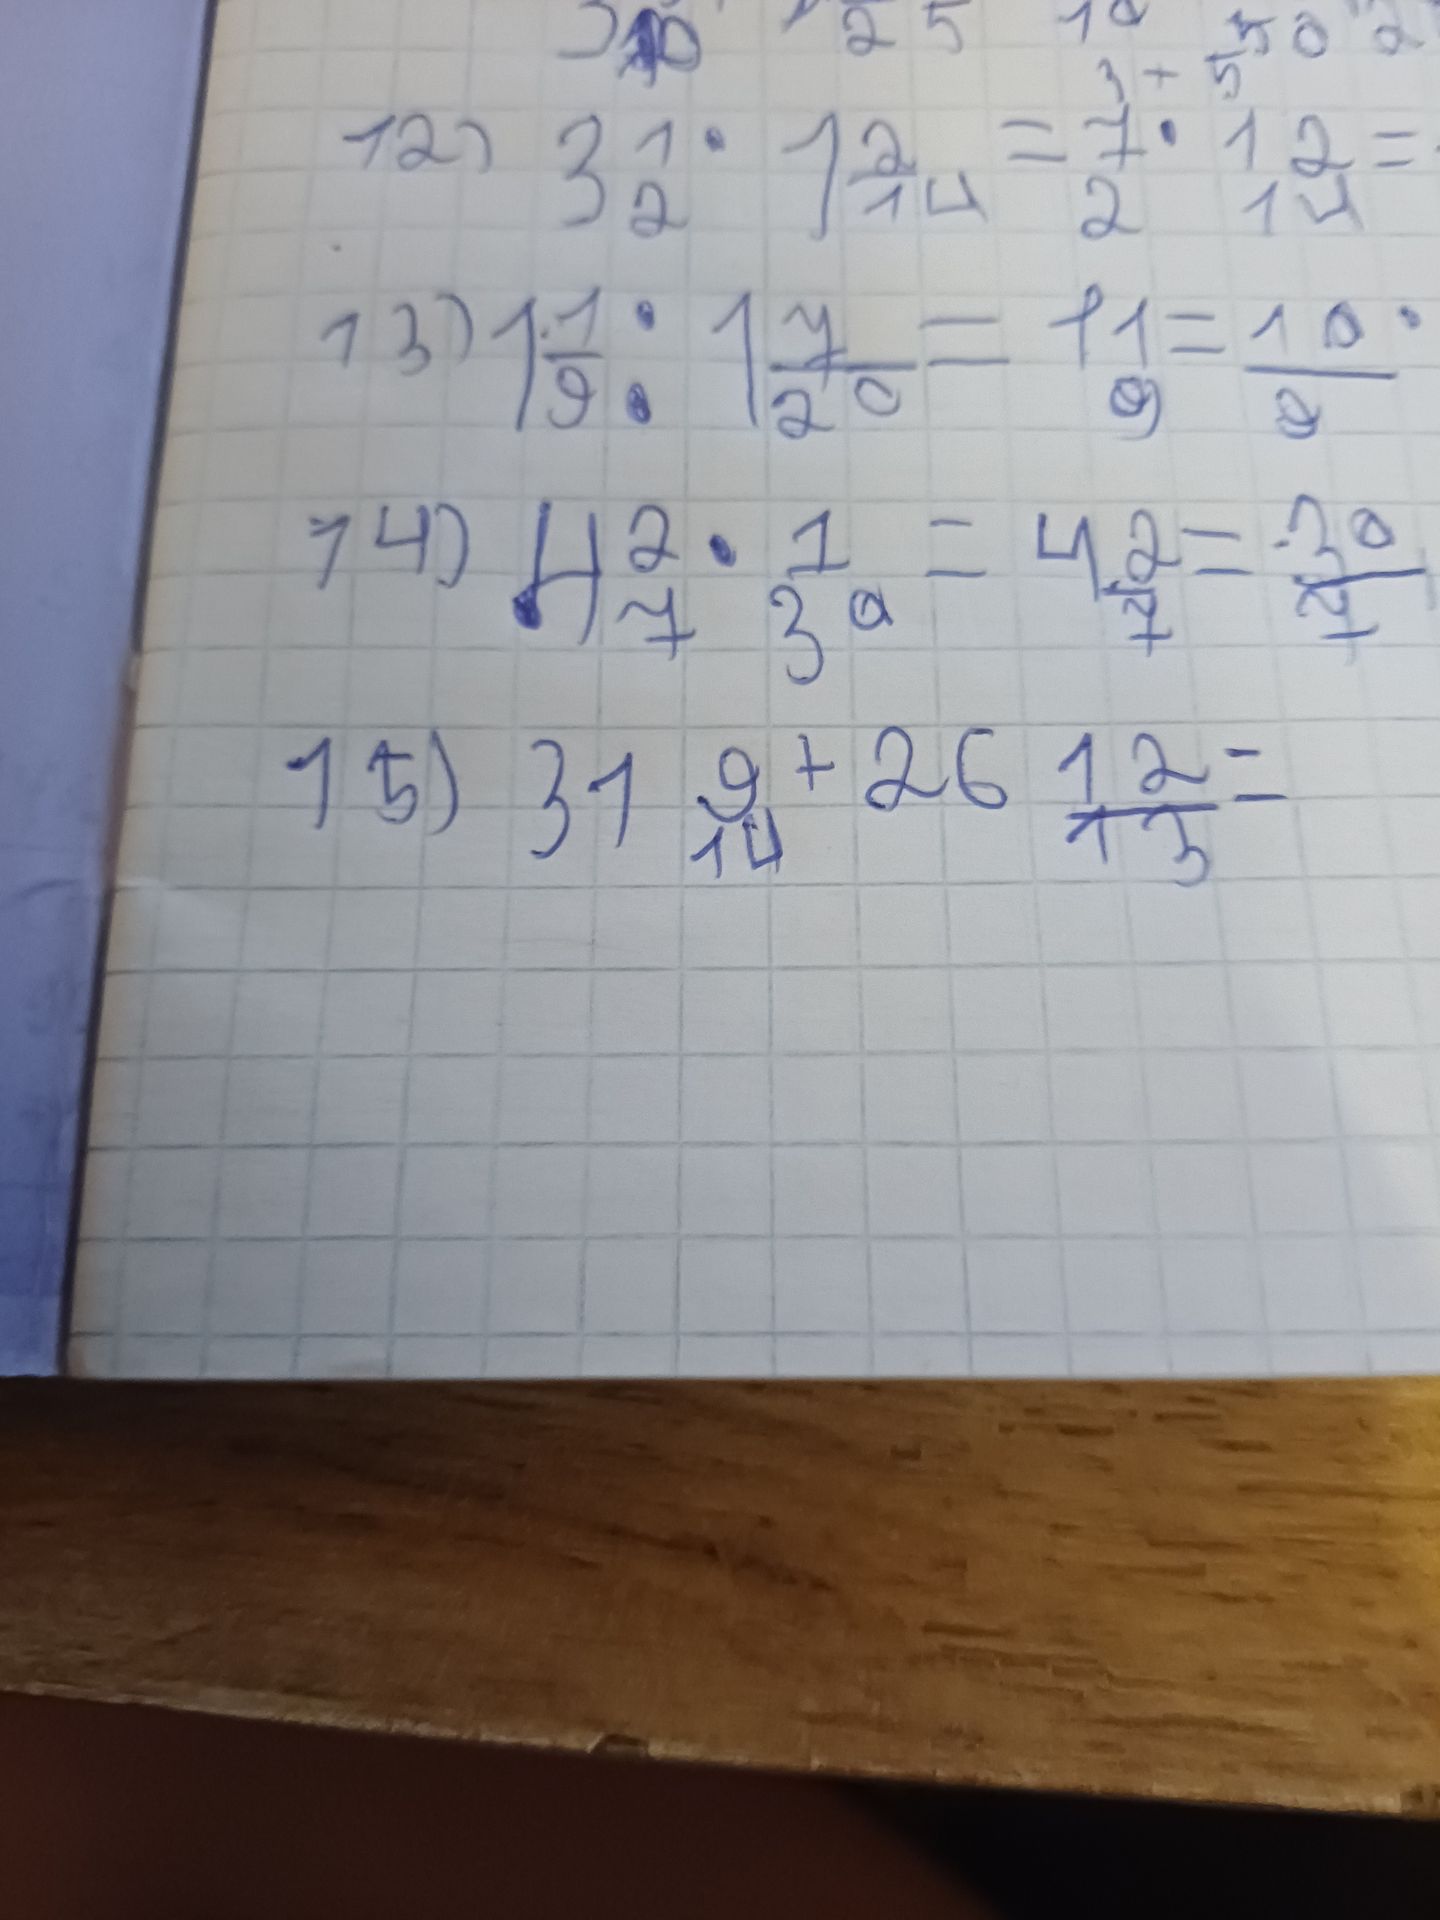 12) 3 1/2 · 1 2/14 = 7/2 · 12/14 =
13) 1 1/9 : 1 7/20 = 11/9 = 10/9 ·
14) 4 2/7 · 1/30 = 4 2/7 = 30/7
15) 31 9/14 + 26 12/13 =